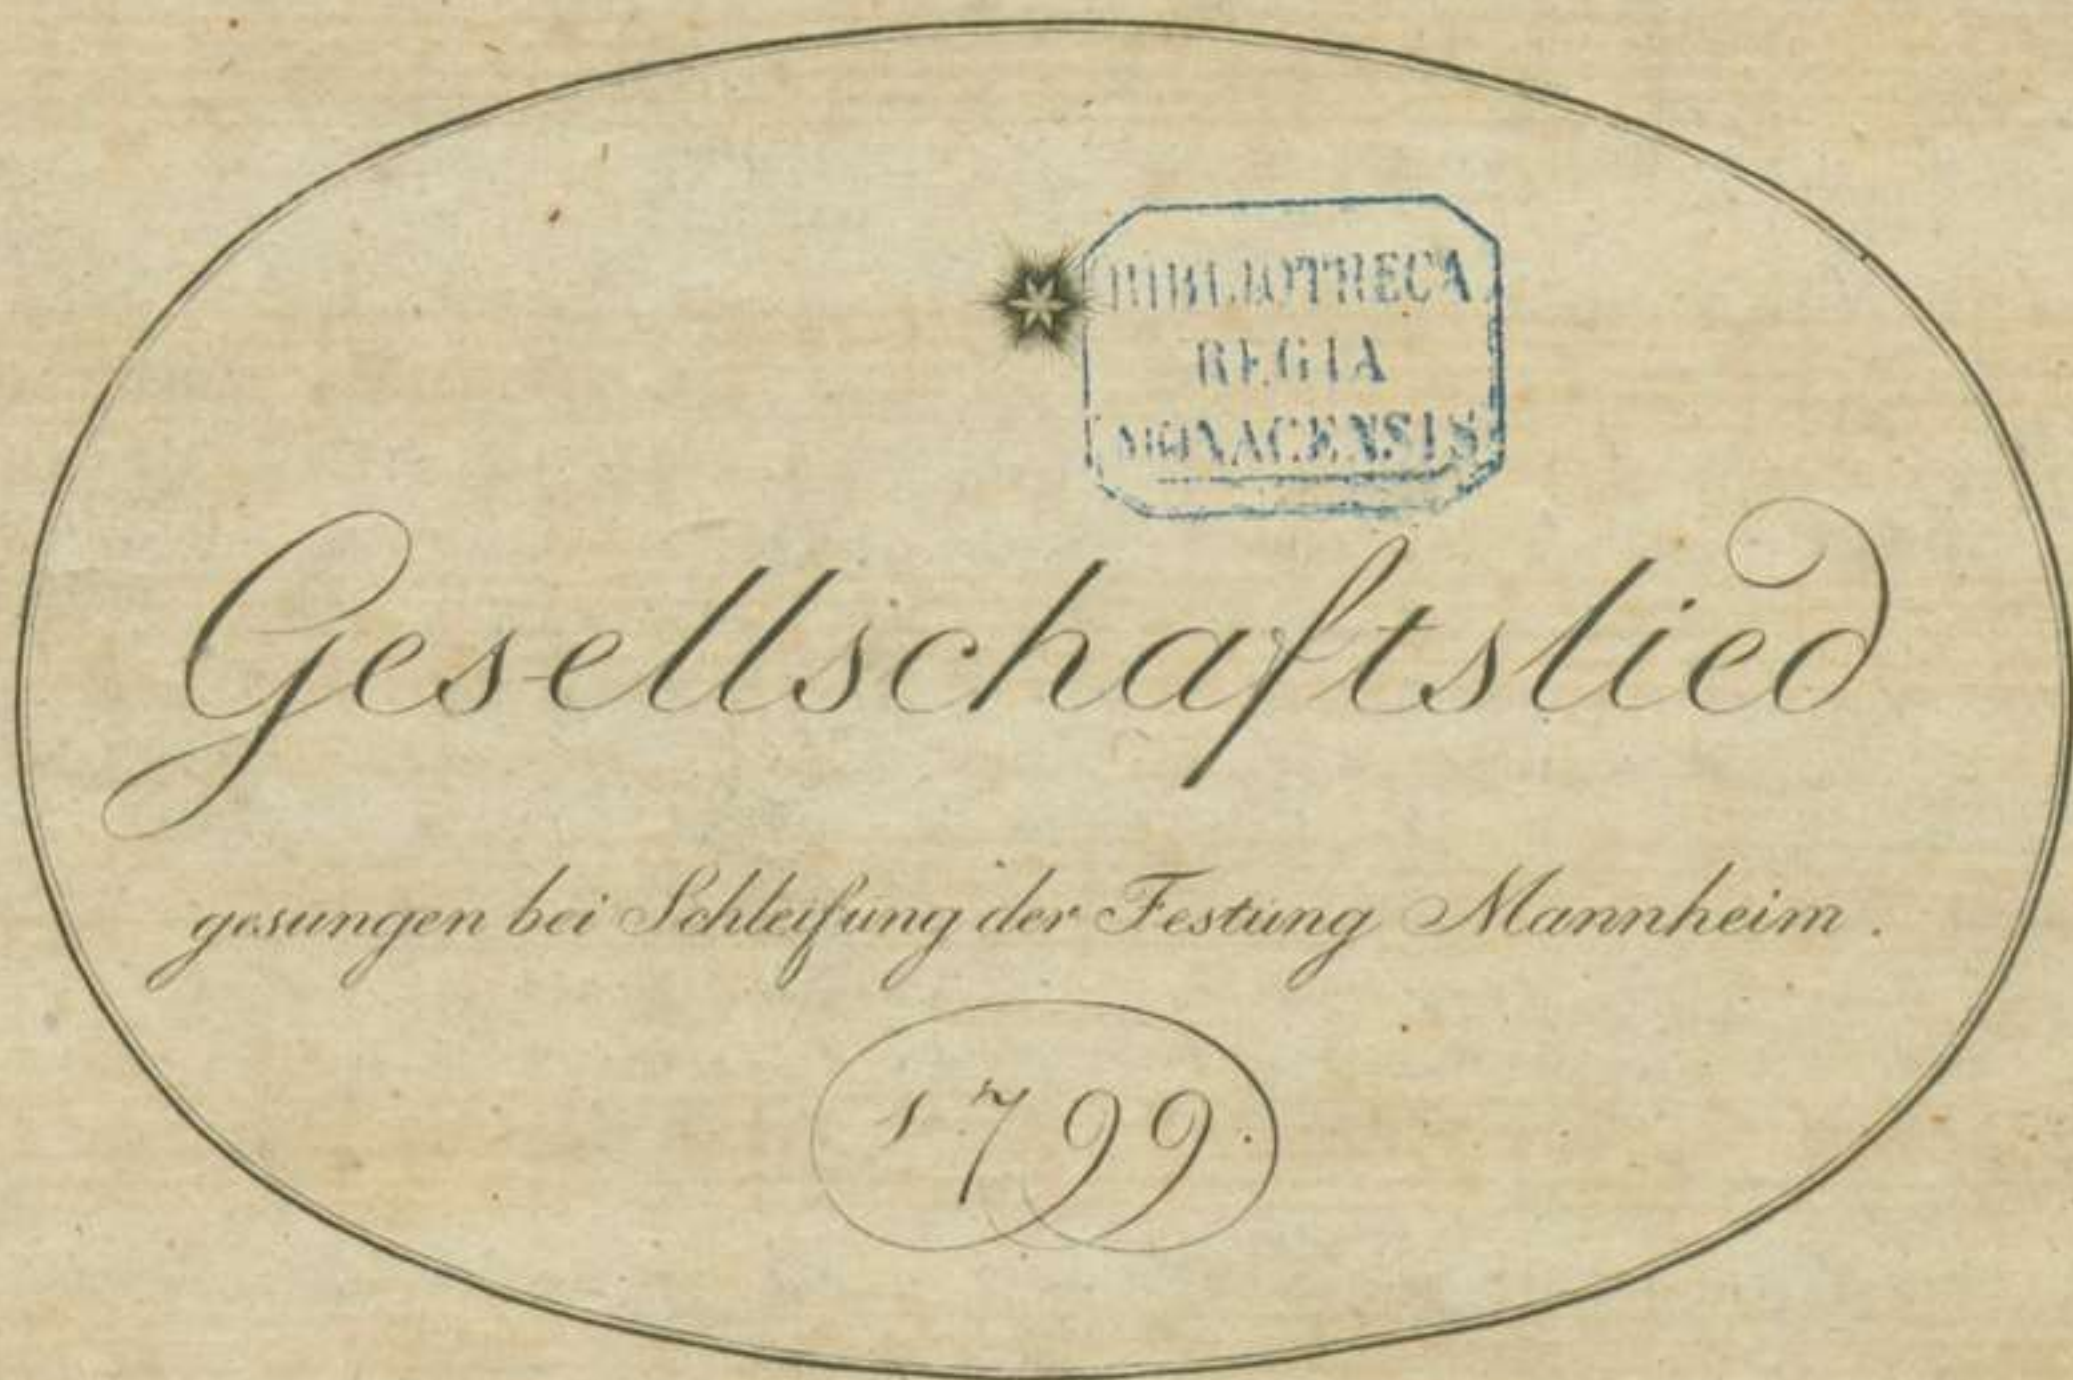 BIBLIOTHECA
REGIA
MONACENSIS
Gesellschaftslied
gesungen bei Schleifung der Festung Mannheim.
1799.